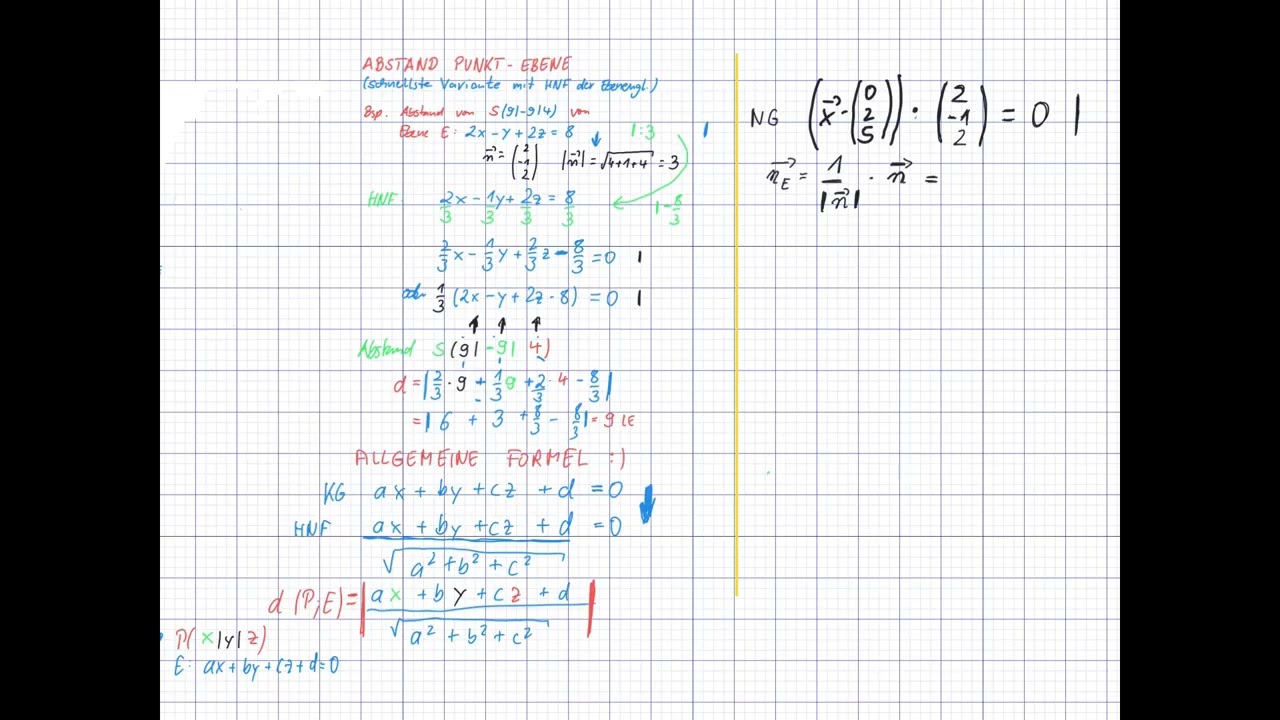 ABSTAND PUNKT-EBENE
(schnellste Variante mit HNF der Ebenengl.)
Bsp. Abstand von S(9|-9|4) von
Ebene E: 2x-y+2z=8
|:3
n⃗=(2 -1 2) |n⃗|=√4+1+4=3
HNF 2/3x - 1/3y + 2/3z = 8/3
|-8/3
2/3x - 1/3y + 2/3z - 8/3 = 0 |
oder 1/3 (2x-y+2z-8) = 0 |
Abstand S(9|-9|4)
d=|2/3·9 + 1/3 9 + 2/3·4 - 8/3|
=|6 + 3 + 8/3 - 8/3|=9 LE
ALLGEMEINE FORMEL :)
KG ax+by+cz+d=0
HNF (ax+by+cz+d)/√(a²+b²+c²) =0
d(P;E)=|(ax+by+cz+d)/√(a²+b²+c²)|
P(x|y|z)
E: ax+by+cz+d=0
NG (x⃗-(0 2 5))·(2 -1 2)=0 |
n⃗E = 1/|n⃗| · n⃗ =